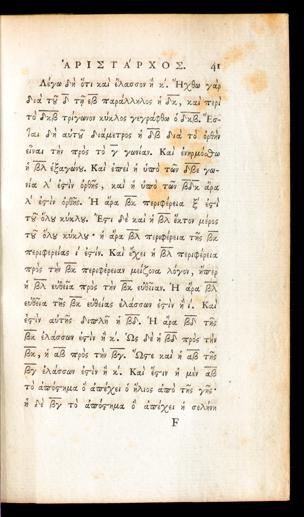 ἈΡΙΣΤΑΡΧΟΣ. 41
Λέγω δὴ ὅτι καὶ ἔλασσον ἢ κ΄. Ἤχθω γὰρ
διὰ τοῦ δ τῇ εβ παράλληλος ἡ δκ, καὶ περὶ
τὸ δκβ τρίγωνον κύκλος γεγράφθω ὁ δκβ. Ἔσ-
ται δὴ αὐτοῦ διάμετρος ἡ δβ διὰ τὸ ὀρθὴν
εἶναι τὴν πρὸς τὸ γωνίαν. Καὶ ἐνηρμόσθω
ἡ βλ ἑξαγώνου. Καὶ ἐπεὶ ἡ ὑπὸ τῶν δβε γω-
νία λ΄ ἐστὶν ὀρθῆς, καὶ ἡ ὑπὸ τῶν βδκ ἄρα
λ΄ ἐστὶν ὀρθῆς. Ἡ ἄρα βκ περιφέρεια ξ ἐστὶ
τοῦ ὅλου κύκλου. Ἔστι δὲ καὶ ἡ βλ ἕκτον μέρος
τοῦ ὅλου κύκλου· ἡ ἄρα βλ περιφέρεια τῆς βκ
περιφερείας ἐστίν. Καὶ ἔχει ἡ βλ περιφέρεια
πρὸς τὴν βκ περιφέρειαν μείζονα λόγον, ἤπερ
ἡ βλ εὐθεῖα πρὸς τὴν βκ εὐθεῖαν. Ἡ ἄρα βλ
εὐθεῖα τῆς βκ εὐθείας ἐλάσσων ἐστὶν ἢ ι΄. Καὶ
ἐστὶν αὐτῆς διπλῆ ἡ βδ. Ἡ ἄρα βδ τῆς
βκ ἐλάσσων ἐστὶν ἢ κ΄. Ὡς δὲ ἡ βδ πρὸς τὴν
βκ, ἡ αβ πρὸς τὴν βγ. Ὥστε καὶ ἡ αβ τῆς
βγ ἐλάσσων ἐστὶν ἢ κ΄. Καὶ ἔστιν ἡ μὲν αβ
τὸ ἀπόστημα ὃ ἀπέχει ὁ ἥλιος ἀπὸ τῆς γῆς·
ἡ δὲ βγ τὸ ἀπόστημα ὃ ἀπέχει ἡ σελήνη
F